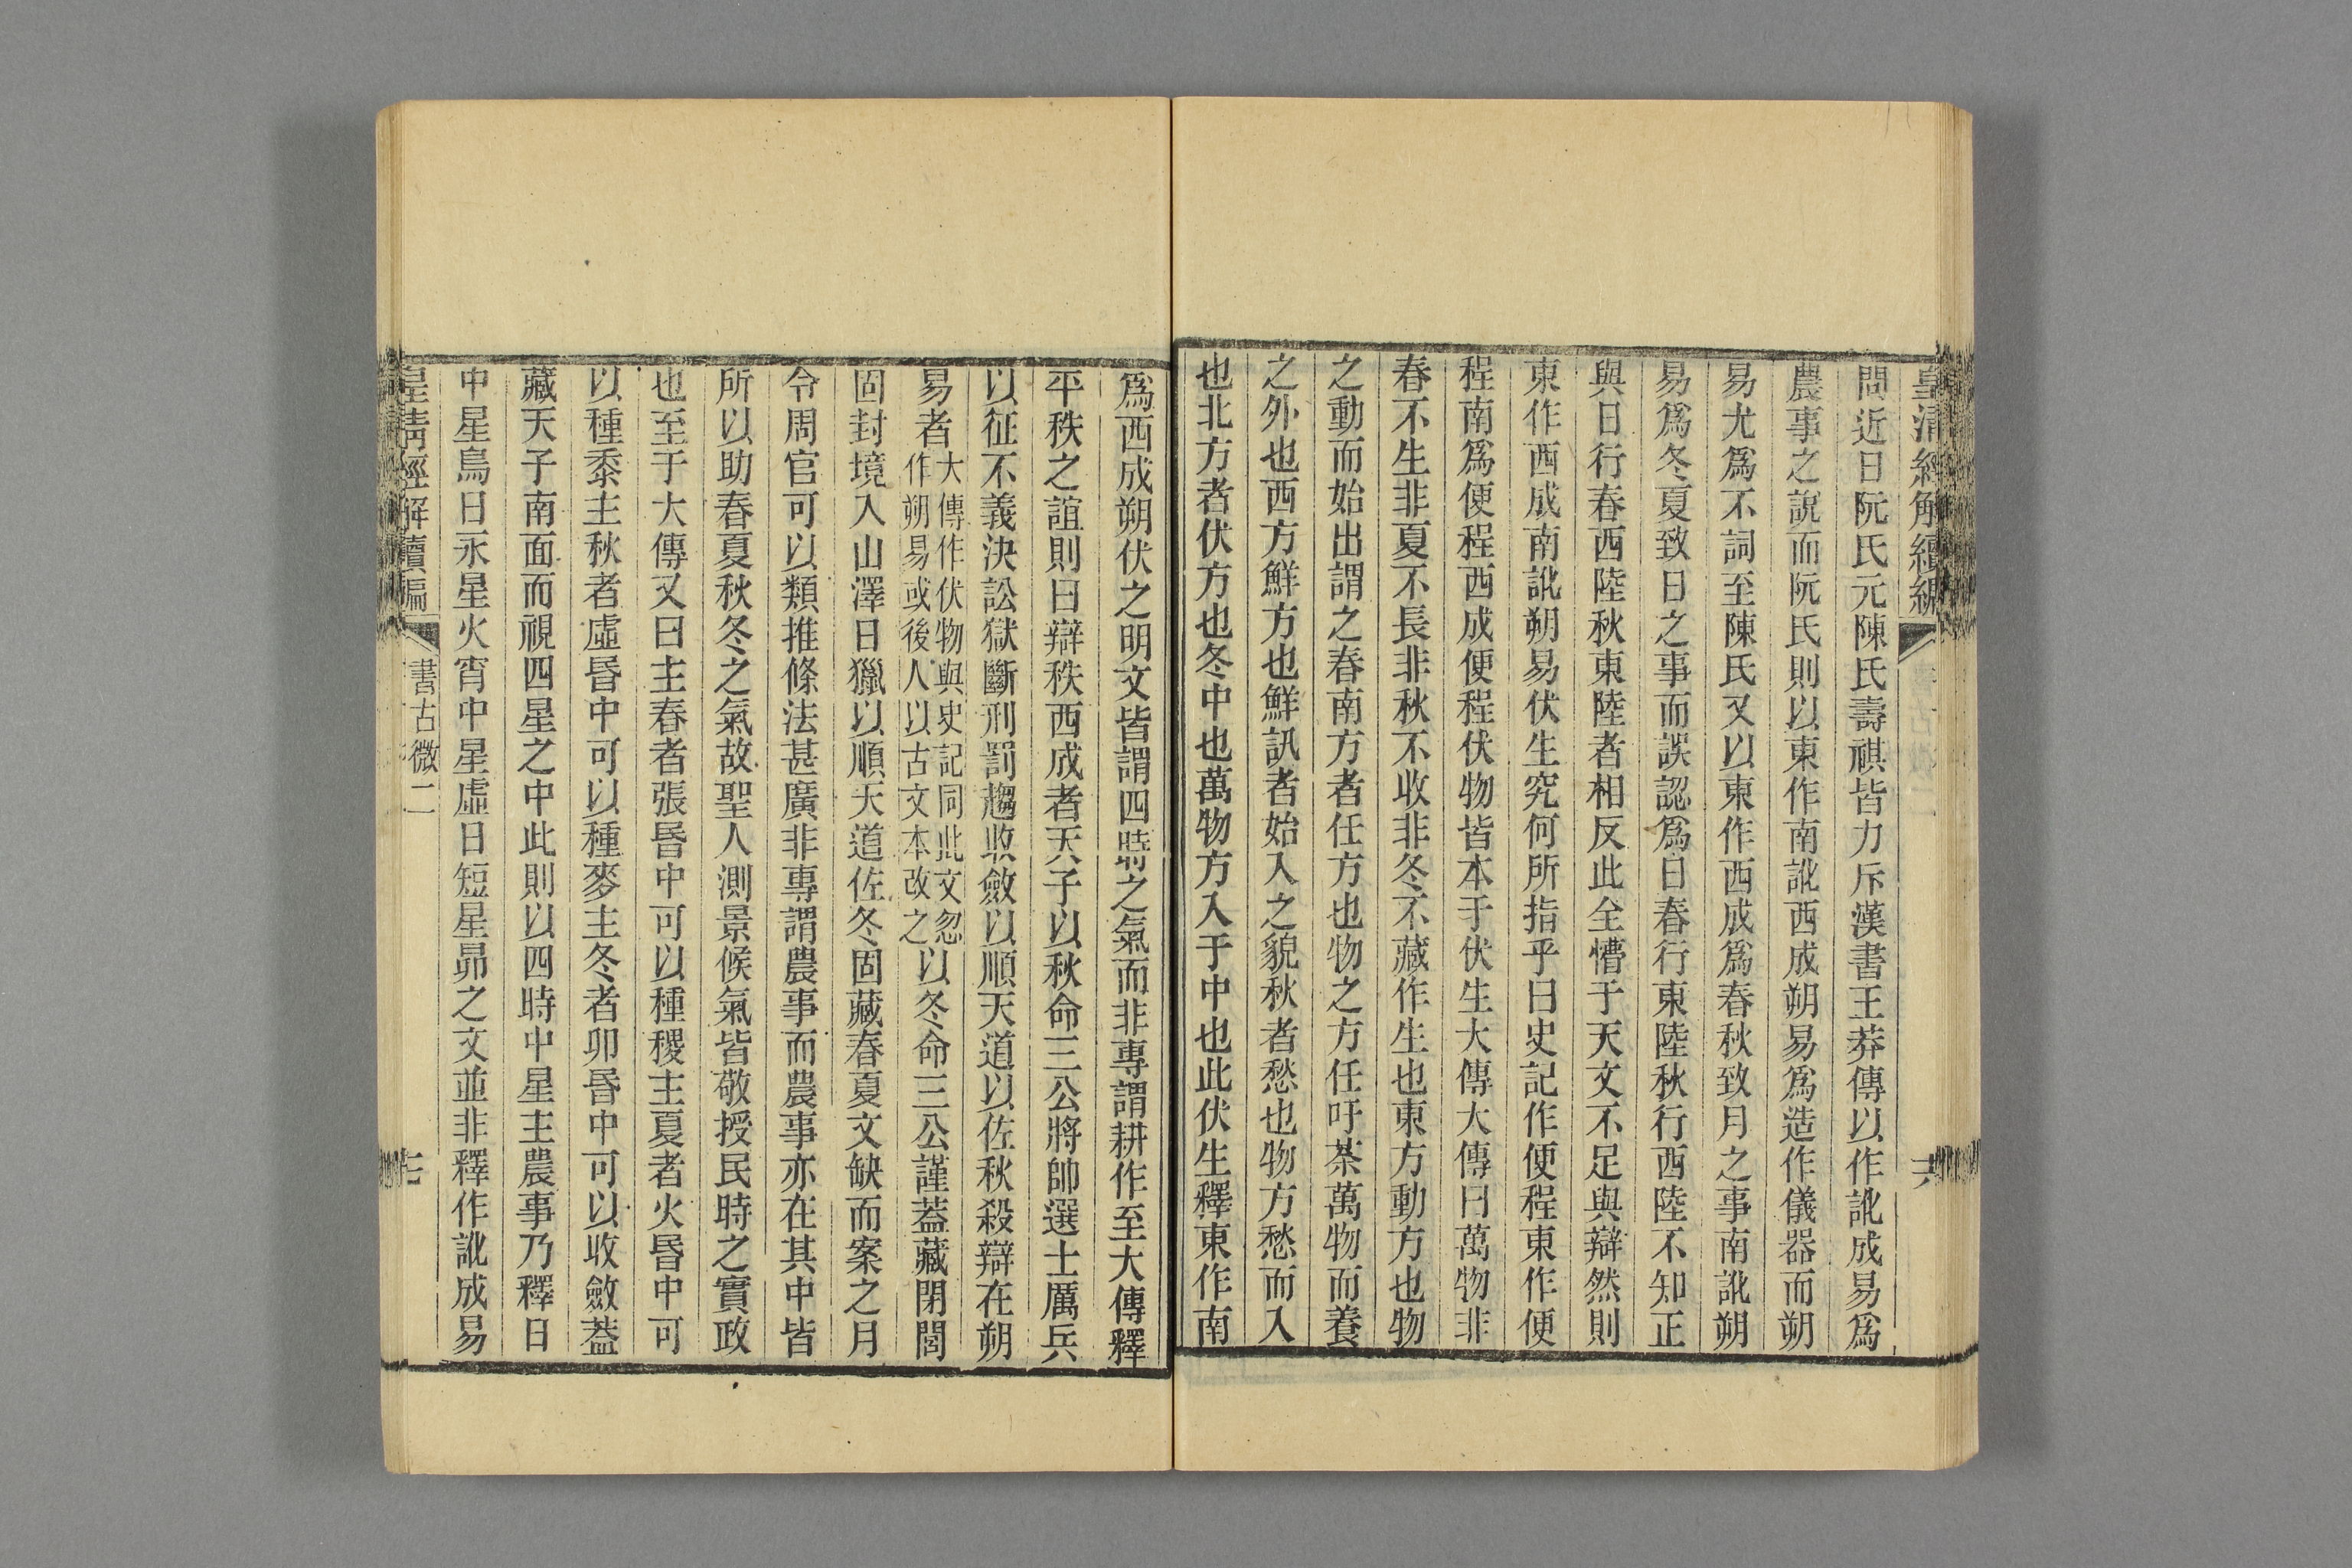 皇淸經解續編
問近日阮氏元陳氏壽祺皆力斥漢書王莽傳以作訛成易爲
農事之說而阮氏則以東作南訛西成朔易爲造作儀器而朔
易尤爲不詞至陳氏又以東作西成爲春秋致月之事南訛朔
易爲冬夏致日之事而誤認爲日春行東陸秋行西陸不知正
與日行春西陸秋東陸者相反此全懵于天文不足與辯然則
東作西成南訛朔易伏生究何所指乎曰史記作便程東作便
程南爲便程西成便程伏物皆本于伏生大傳大傳曰萬物非
春不生非夏不長非秋不收非冬不藏作生也東方動方也物
之動而始出謂之春南方者任方也物之方任吁荼萬物而養
之外也西方鮮方也鮮訊者始入之貌秋者愁也物方愁而入
也北方者伏方也冬中也萬物方入于中也此伏生釋東作南
爲西成朔伏之明文皆謂四時之氣而非專謂耕作至大傳釋
平秩之誼則曰辯秩西成者天子以秋命三公將帥選士厲兵
以征不義決訟獄斷刑罰趨收斂以順天道以佐秋殺辯在朔
易者大傳作伏物與史記同此文忽作朔易或後人以古文本改之以冬命三公謹蓋藏閉閭
固封境入山澤日獵以順天道佐冬固藏春夏文缺而案之月
令周官可以類推條法甚廣非專謂農事而農事亦在其中皆
所以助春夏秋冬之氣故聖人測景候氣皆敬授民時之實政
也至于大傳又曰主春者張昬中可以種稷主夏者火昬中可
以種黍主秋者虛昬中可以種麥主冬者卯昬中可以收斂蓋
藏天子南面而視四星之中此則以四時中星主農事乃釋日
中星鳥日永星火宵中星虛日短星昴之文並非釋作訛成易
皇淸經解續編 書古微二 七